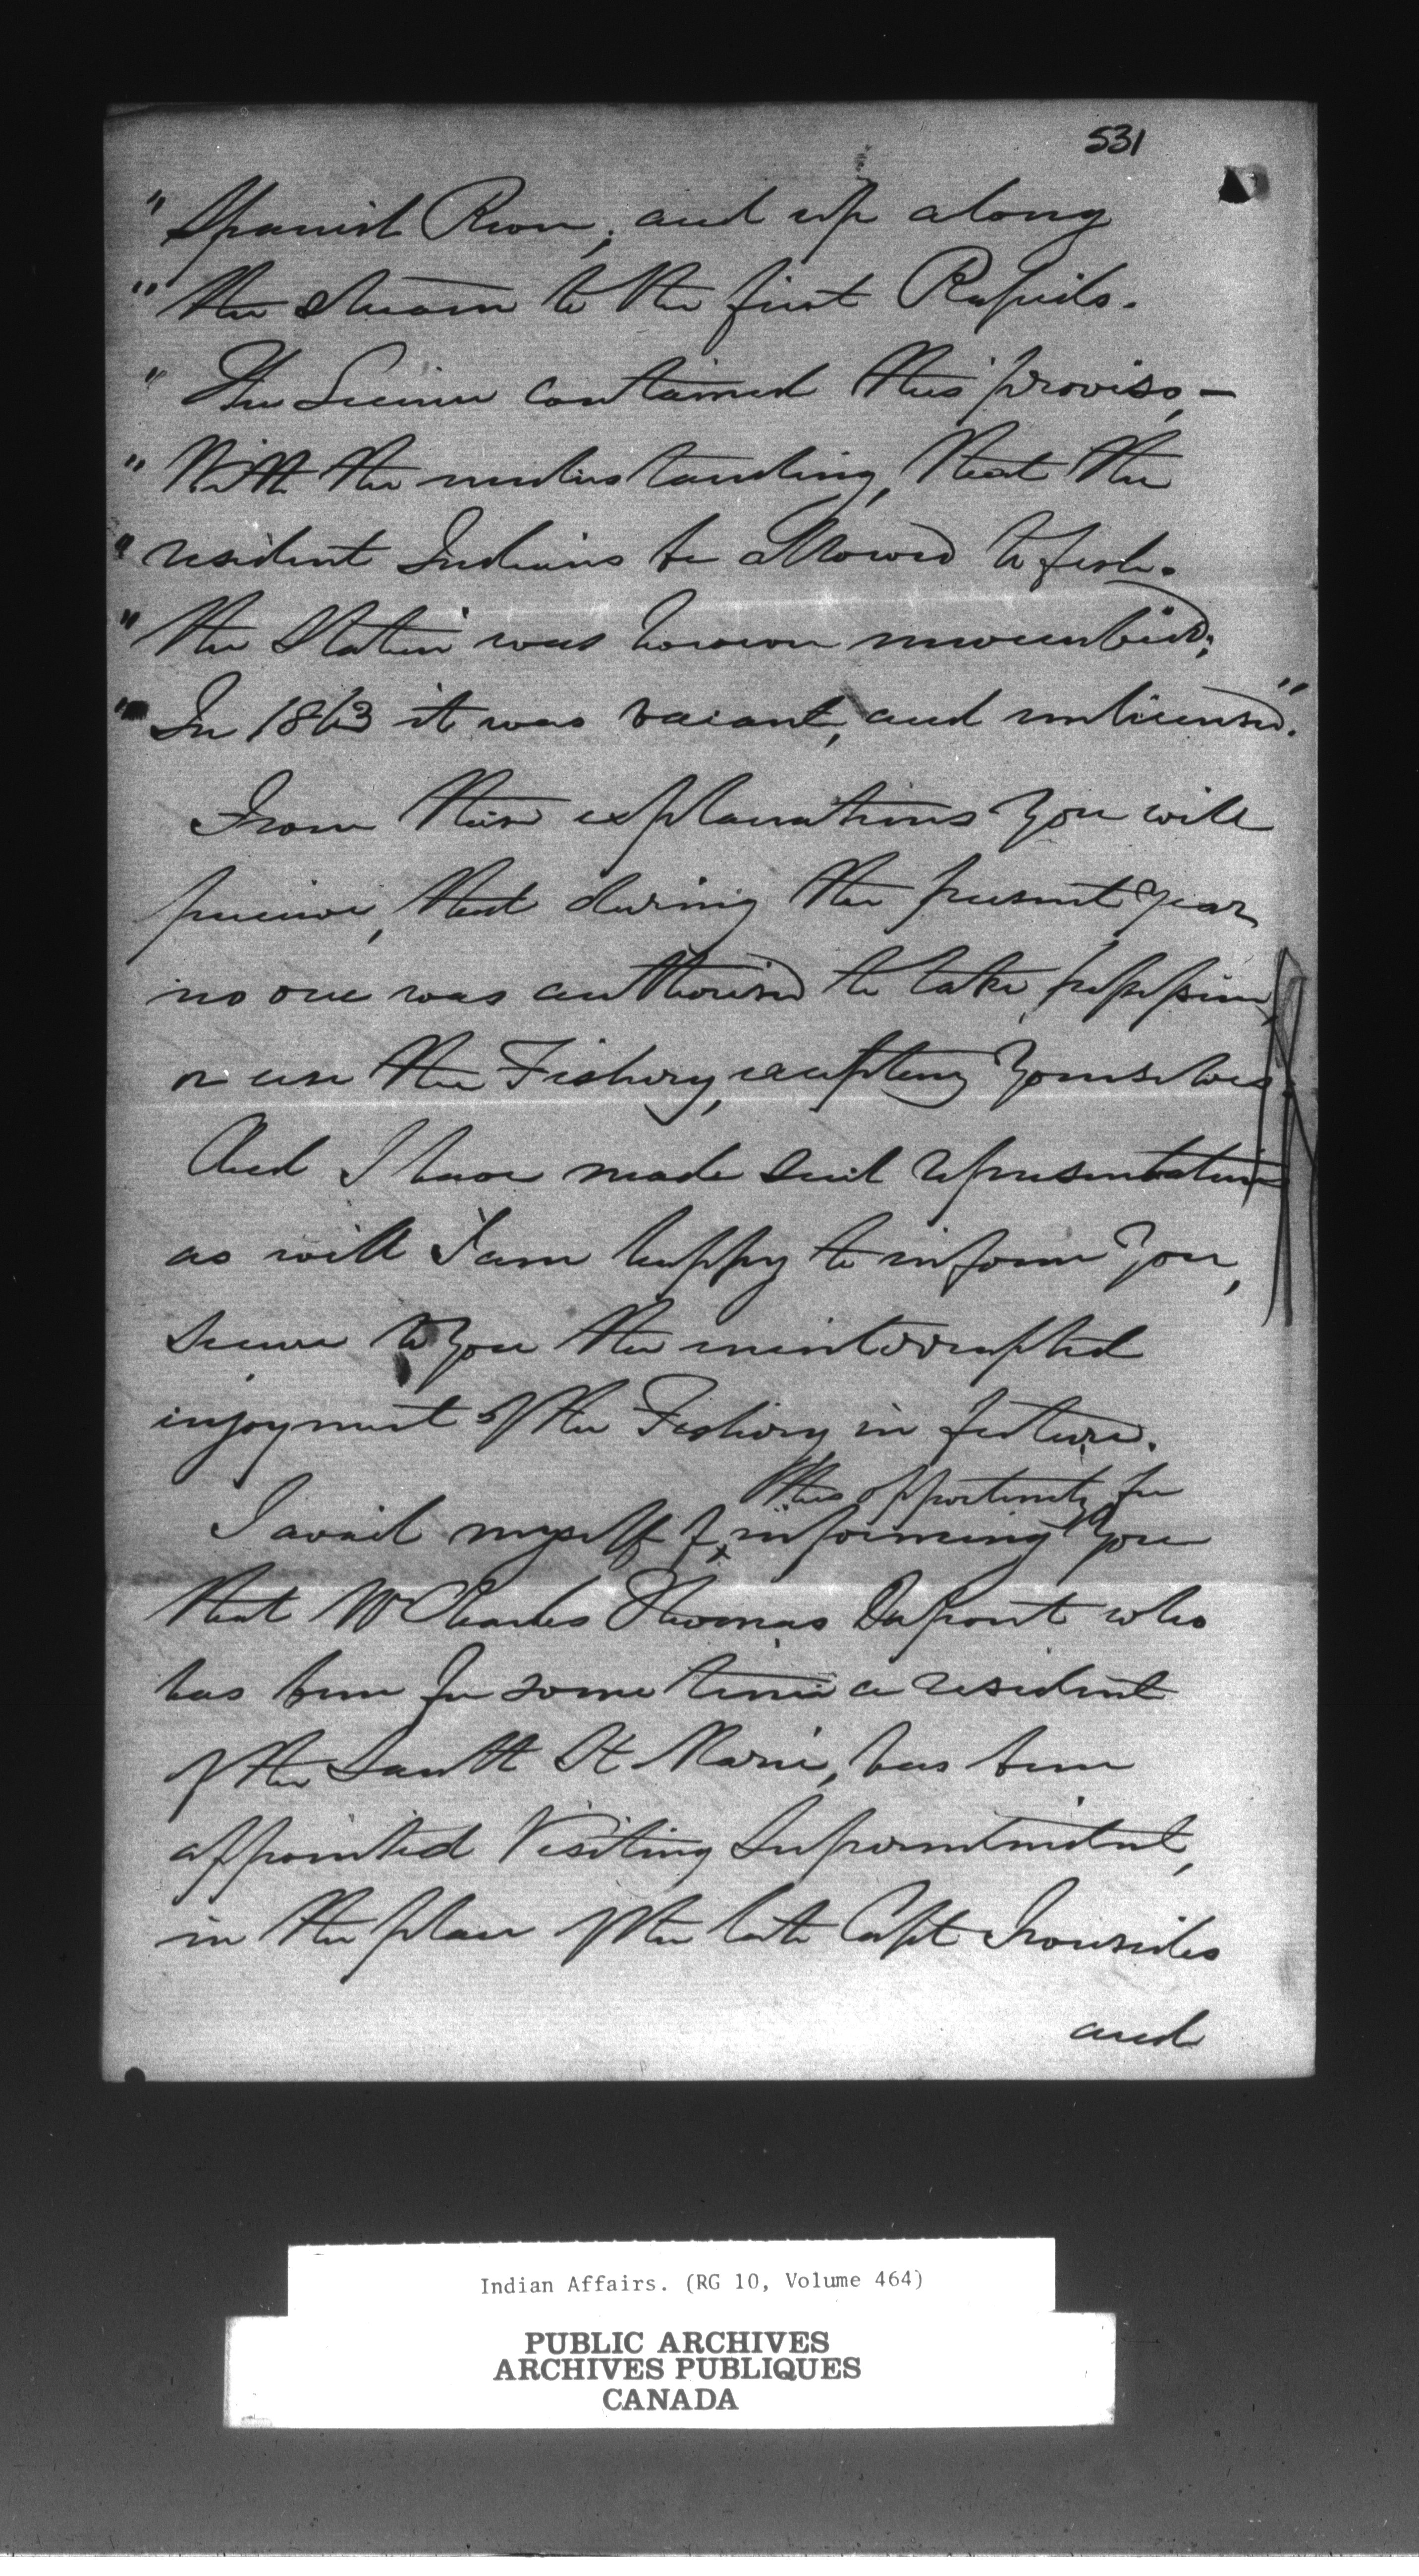 531
" Spanish River, and up along
" the stream to the first Rapids.
" The License contained this proviso,—
" With the understanding, that the
" resident Indians be allowed to fish.
" the Station was however unoccupied;
" In 1863 it was vacant, and unlicensed."
From these explanations you will
perceive, that during the present year
no one was authorised to take possession,
or use the Fishery, excepting yourselves
And I have made such representations
as will I am happy to inform you,
secure to you the uninterrupted
enjoyment of the Fishery in future.
this opportunity for
I avail myself of x informing you
that Mr Charles Thomas Dupont who
has been for some time a resident
of the Sault St Marie, has been
appointed Visiting Superintendent,
in the place of the late Capt Ironsides
and
Indian Affairs. (RG 10, Volume 464)
PUBLIC ARCHIVES
ARCHIVES PUBLIQUES
CANADA